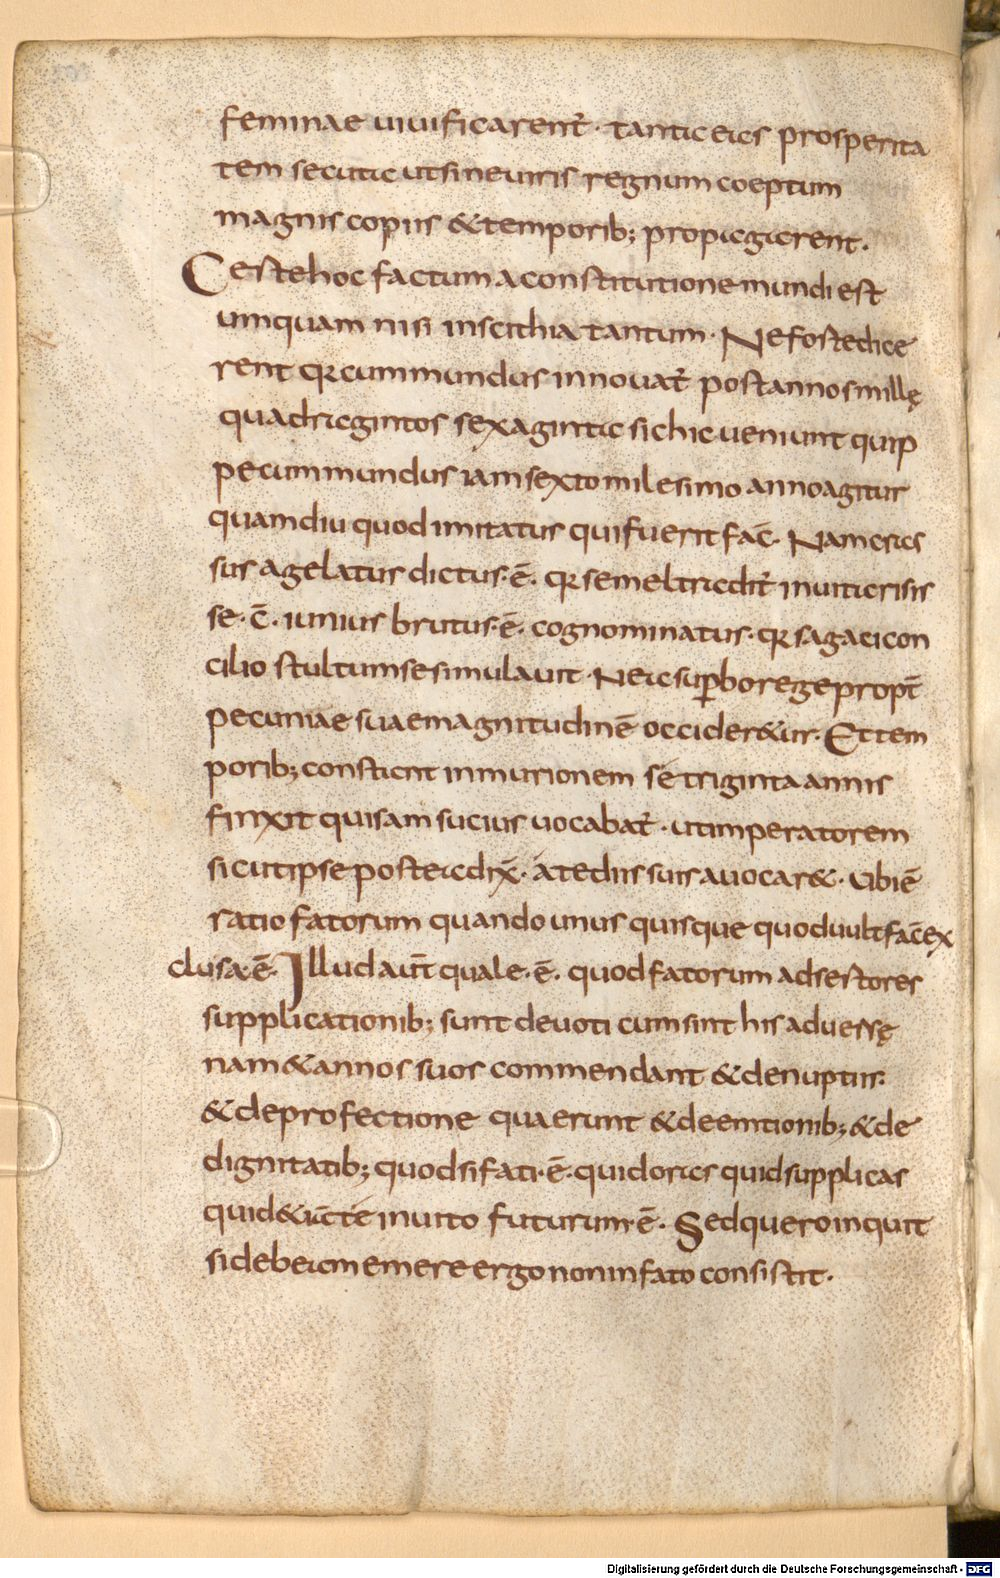 feminae uiuificarent̃· tanta eas prosperita
tem secuta ut sine uiris regnum coeptum
magnis copiis & temporib; propagarent.
Certe hoc factum a constitutione mundi est
umquam nisi in scithia tantum· Ne forte dice
rent qr cum mundus innouat̃ post annos millę
quadragintos sexaginta sic hic ueniunt quip
pe cum mundus iam sexto milesimo anno agitur
quamdiu quod imitatur qui fuerit fac̄. Nam cras
sus agelatus dictus·ē· qr semel tradit̃ in uita risis
se·ē· iunius brutus·ē· cognominatus· qr sagaci con
cilio stultum se simulauit· Ne a suꝑbo rege propt̄
pecuniae suae magnitudinē occider&ur. Et tem
porib; constant in murionem se triginta annis
finxit quisam sucius uocabat̃· ut imperatorem
sicut ipse postea dix̄· a tediis suis auocar&· Ubi ē
ratio fatorum quando unus quisque quod uult fac̄ ex
clusa·ē· Illud aut̄ quale·ē· quod fatorum adsertores
supplicationib; sunt deuoti cum sint his aduersę
nam & annos suos commendant & de nuptiis
& de profectione quaerunt & de emtionib; & de
dignitatib; quod si fati·ē· quid oras quid supplicas
quid & iacte inuito futurum·ē· Sed quero inquit
si debeam emere ergo non in fato consistit·
Digitalisierung gefördert durch die Deutsche Forschungsgemeinschaft - DFG